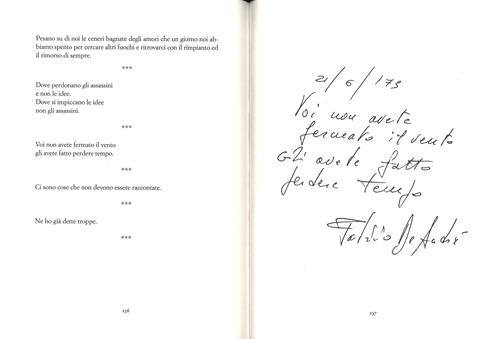 Pesano su di noi le ceneri bagnate degli amori che un giorno noi ab-
biamo spento per cercare altri fuochi e ritrovarci con il rimpianto ed
il rimorso di sempre.
***
Dove perdonano gli assassini
e non le idee.
Dove si impiccano le idee
non gli assassini.
***
Voi non avete fermato il vento
gli avete fatto perdere tempo.
***
Ci sono cose che non devono essere raccontate.
***
Ne ho già dette troppe.
***
236
21/6/173
Voi non avete
fermato il vento
GLi avete fatto
perdere tempo
Fabrizio De André
237